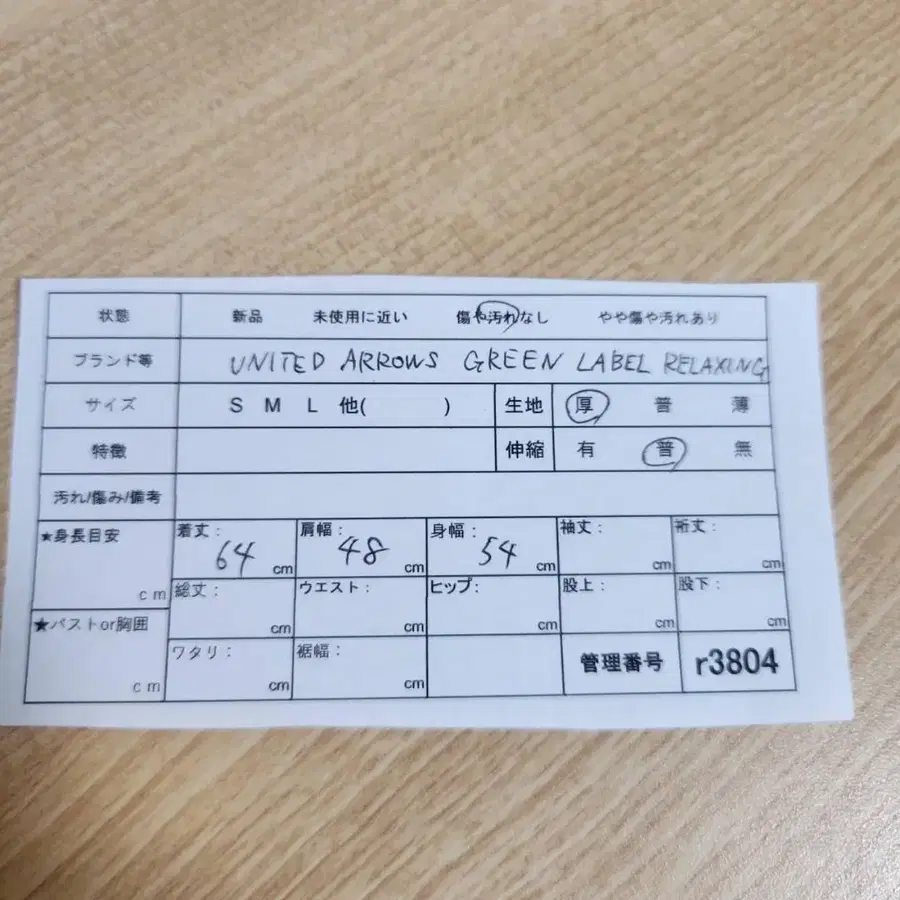 状態 新品 未使用に近い 傷や汚れなし やや傷や汚れあり
ブランド等 UNITED ARROWS GREEN LABEL RELAXING
サイズ S M L 他( ) 生地 厚 普 薄
特徴 伸縮 有 普 無
汚れ/傷み/備考
★身長目安 cm 着丈: 64 cm 肩幅: 48 cm 身幅: 54 cm 袖丈: cm 裄丈: cm
総丈: cm ウエスト: cm ヒップ: cm 股上: cm 股下: cm
★バストor胸囲 cm ワタリ: cm 裾幅: cm 管理番号 r3804